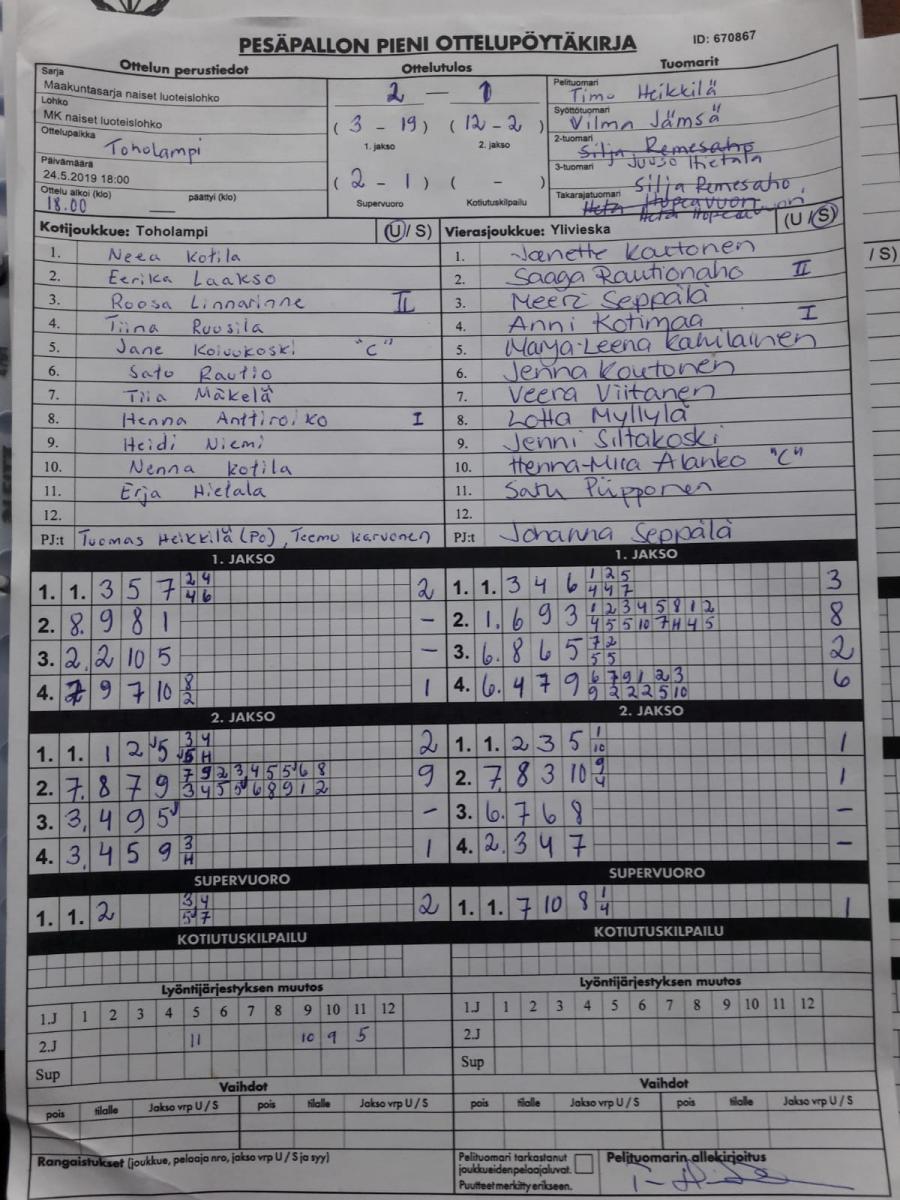 PESÄPALLON PIENI OTTELUPÖYTÄKIRJA ID: 670867
Ottelun perustiedot Ottelutulos Tuomarit
Sarja
Maakuntasarja naiset luoteislohko
Lohko
MK naiset luoteislohko
Ottelupaikka
Toholampi
Päivämäärä
24.5.2019 18:00
Ottelu alkoi (klo) päättyi (klo)
18.00
2 – 1
( 3 - 19 ) ( 12 - 2 )
1. jakso 2. jakso
( 2 - 1 ) ( - )
Supervuoro Kotiutuskilpailu
Pelituomari
Timo Heikkilä
Syöttötuomari
Vilma Jämsä
2-tuomari
Silja Remesaho
Juuso Ihetala
3-tuomari
Silja Remesaho,
Takarajatuomari
Heta Hopeavuori
Heta Hopeavuori
Kotijoukkue: Toholampi (U / S) Vierasjoukkue: Ylivieska (U / S)
1. Neea Kotila 1. Janette Kautonen
2. Eerika Laakso 2. Saaga Rautionaho II
3. Roosa Linnarinne II 3. Meeri Seppälä
4. Tiina Ruusila 4. Anni Kotimaa I
5. Jane Koivukoski "C" 5. Marja-Leena Kahilainen
6. Satu Rautio 6. Jenna Koutonen
7. Tiia Mäkelä 7. Veera Viitanen
8. Henna Anttiroiko I 8. Lotta Myllylä
9. Heidi Niemi 9. Jenni Siltakoski
10. Nenna Kotila 10. Henna-Mira Alanko "C"
11. Erja Hietala 11. Satu Piipponen
12. 12.
PJ:t Tuomas Heikkilä (PO), Teemu Karvonen PJ:t Johanna Seppälä
1. JAKSO 1. JAKSO
1. 1. 3 5 7 2 4 2 1. 1. 3 4 6 1 2 5 3
4 6 4 4 7
2. 8. 9 8 1 – 2. 1. 6 9 3 1 2 3 4 5 8 1 2 8
4 5 5 10 7 H 4 5
3. 2. 2 10 5 – 3. 6. 8 6 5 7 2 2
5 5
4. 7 9 7 10 8 1 4. 6. 4 7 9 6 7 9 1 2 3 6
2 9 2 2 2 5 10
2. JAKSO 2. JAKSO
1. 1. 1 2 5 3 4 2 1. 1. 2 3 5 1 1
5 H 10
2. 7. 8 7 9 7 9 2 3 4 5 5 6 8 9 2. 7. 8 3 10 9 1
3 4 5 5 6 8 9 1 2 4
3. 3. 4 9 5 – 3. 6. 7 6 8 –
4. 3. 4 5 9 3 1 4. 2. 3 4 7 –
H
SUPERVUORO SUPERVUORO
1. 1. 2 3 4 2 1. 1. 7 10 8 1 1
5 7 4
KOTIUTUSKILPAILU KOTIUTUSKILPAILU
Lyöntijärjestyksen muutos Lyöntijärjestyksen muutos
1.J 1 2 3 4 5 6 7 8 9 10 11 12 1.J 1 2 3 4 5 6 7 8 9 10 11 12
2.J 11 10 9 5 2.J
Sup Sup
Vaihdot Vaihdot
pois tilalle Jakso vrp U / S pois tilalle Jakso vrp U / S pois tilalle Jakso vrp U / S pois tilalle Jakso vrp U / S
Rangaistukset (joukkue, pelaaja nro, jakso vrp U / S ja syy)
Pelituomari tarkastanut
joukkueiden pelaajaluvat.
Puutteet merkitty erikseen.
Pelituomarin allekirjoitus
/ S)